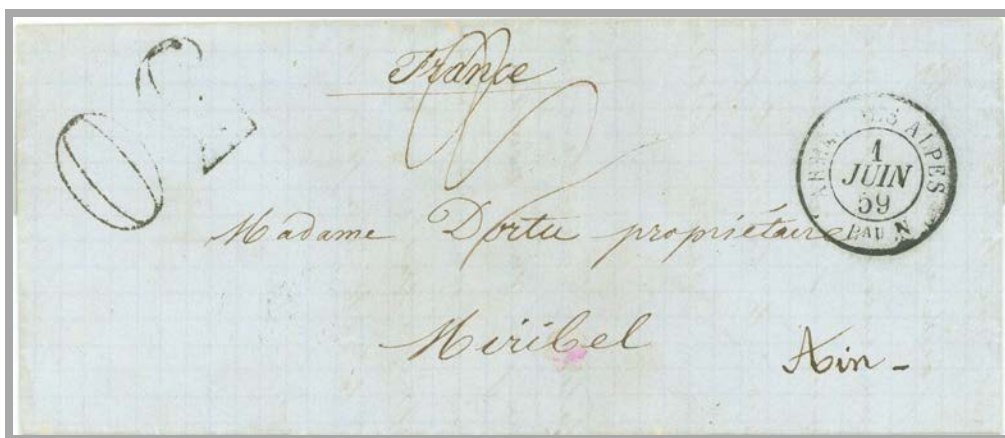 France
ARMÉE DES ALPES
1
JUIN
59
BAU N
Madame Dortu propriétaire
Miribel
Ain -